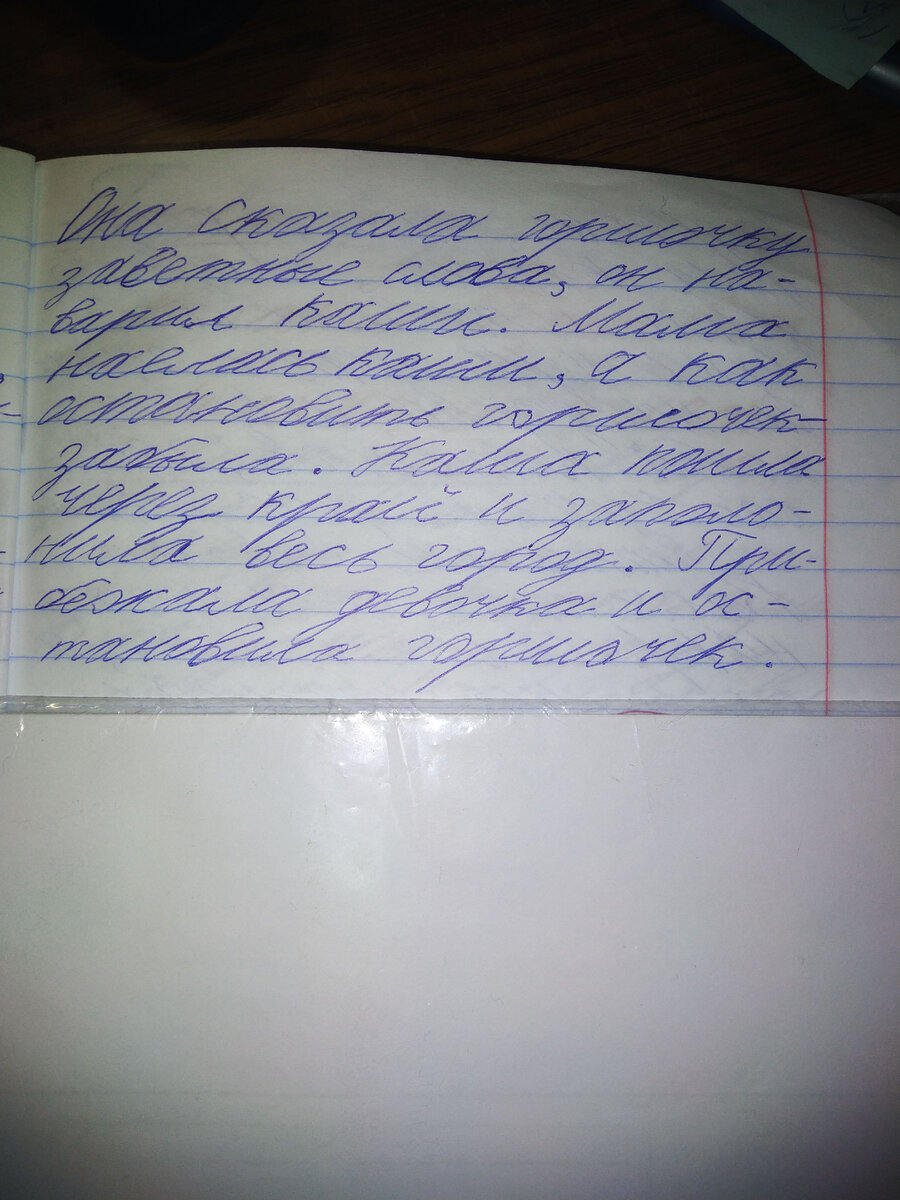 Она сказала горшочку
заветные слова, он на-
варил каши. Мама
наелась каши, а как
остановить горшочек
забыла. Каша пошла
через край и заполо-
нила весь город. При-
бежала девочка и ос-
тановила горшочек.